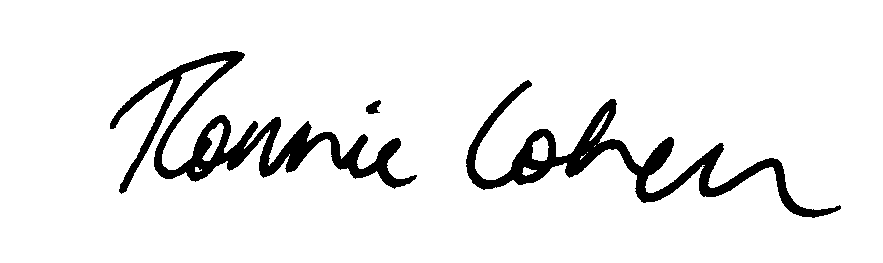 Ronnie Cohen